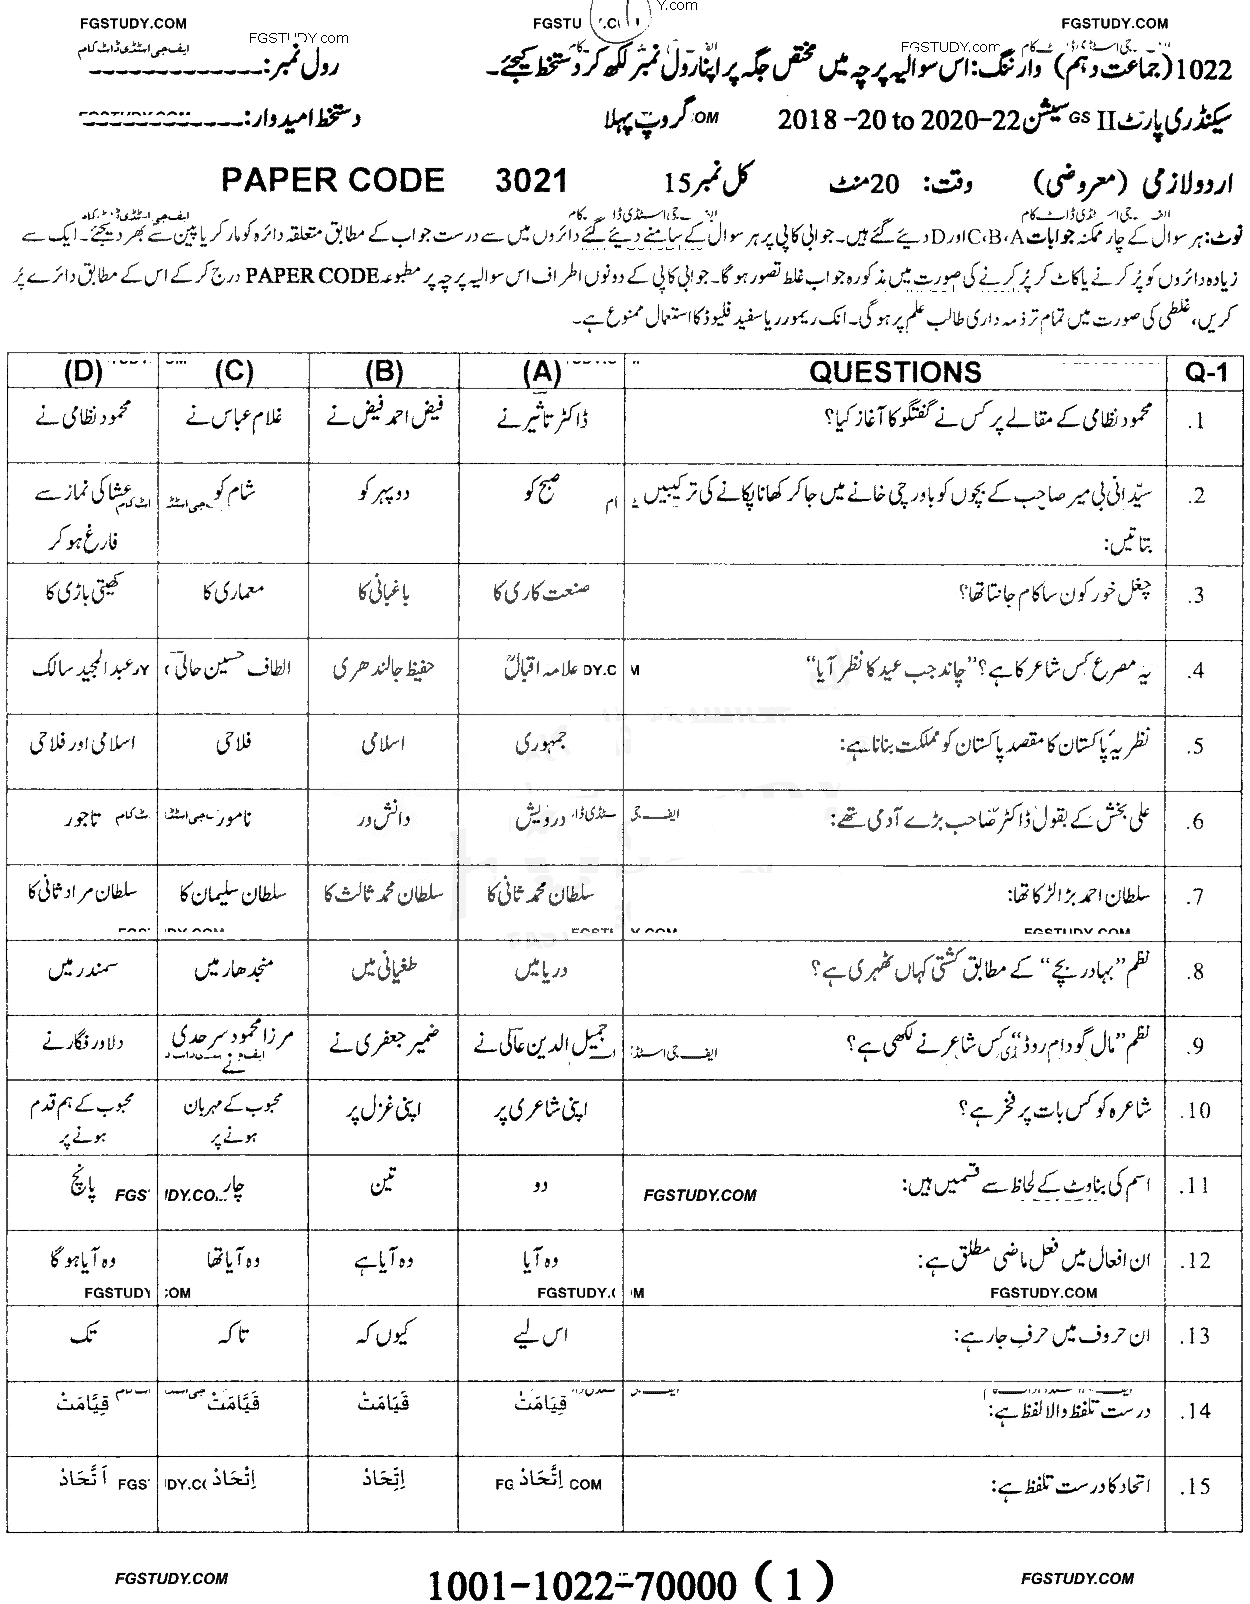 FGSTUDY.COM FGSTU Y.com FGSTUDY.COM
1022 (جماعت دہم) وارننگ: اس سوالیہ پرچہ میں مختص جگہ پر اپنا رول نمبر لکھ کر دستخط کیجئے۔ رول نمبر: ـــــــــــ
سیکنڈری پارٹ II سیشن 2018 -20 to 2020-22 گروپ پہلا دستخط امیدوار: ـــــــــــ
اردو لازمی (معروضی) وقت: 20 منٹ کل نمبر 15 PAPER CODE 3021
نوٹ: ہر سوال کے چار ممکنہ جوابات C،B،A اور D دیئے گئے ہیں۔ جوابی کاپی پر ہر سوال کے سامنے دیئے گئے دائروں میں سے درست جواب کے مطابق متعلقہ دائرہ کو مارکر یا پین سے بھر دیجئے۔ ایک سے
زیادہ دائروں کو پُر کرنے یا کاٹ کر پُر کرنے کی صورت میں مذکورہ جواب غلط تصور ہو گا۔ جوابی کاپی کے دونوں اطراف اس سوالیہ پرچہ پر مطبوعہ PAPER CODE درج کر کے اس کے مطابق دائرے پُر
کریں، غلطی کی صورت میں تمام تر ذمہ داری طالب علم پر ہو گی۔ انک ریمورر یا سفید فلیوڈ کا استعمال ممنوع ہے۔
Q-1 QUESTIONS (A) (B) (C) (D)
1. محمود نظامی کے مقالے پر کس نے گفتگو کا آغاز کیا؟ ڈاکٹر تاثیر نے فیض احمد فیض نے غلام عباس نے محمود نظامی نے
2. سیّدانی بی میر صاحب کے بچوں کو باورچی خانے میں جا کر کھانا پکانے کی ترکیبیں صبح کو دوپہر کو شام کو عشا کی نماز سے
بتاتیں: فارغ ہو کر
3. چغل خور کون سا کام جانتا تھا؟ صنعت کاری کا باغبانی کا معماری کا کھیتی باڑی کا
4. یہ مصرع کس شاعر کا ہے؟ ”چاند جب عید کا نظر آیا“ علامہ اقبالؒ حفیظ جالندھری الطاف حسین حالی عبدالمجید سالک
5. نظریۂ پاکستان کا مقصد پاکستان کو مملکت بنانا ہے: جمہوری اسلامی فلاحی اسلامی اور فلاحی
6. علی بخش کے بقول ڈاکٹر صاحب بڑے آدمی تھے: درویش دانش ور نامور تاجور
7. سلطان احمد بڑا لڑکا تھا: سلطان محمد ثانی کا سلطان محمد ثالث کا سلطان سلیمان کا سلطان مراد ثانی کا
8. نظم ”بہادر بچے“ کے مطابق کشتی کہاں ٹھہری ہے؟ دریا میں طغیانی میں منجدھار میں سمندر میں
9. نظم ”مال گودام روڈ“ کس شاعر نے لکھی ہے؟ جمیل الدین عالی نے ضمیر جعفری نے مرزا محمود سرحدی نے دلاور فگار نے
10. شاعرہ کو کس بات پر فخر ہے؟ اپنی شاعری پر اپنی غزل پر محبوب کے مہربان ہونے پر محبوب کے ہم قدم ہونے پر
11. اسم کی بناوٹ کے لحاظ سے قسمیں ہیں: دو تین چار پانچ
FGSTUDY.COM
12. ان افعال میں فعل ماضی مطلق ہے: وہ آیا وہ آیا ہے وہ آیا تھا وہ آیا ہو گا
FGSTUDY.COM
13. ان حروف میں حرفِ جار ہے: اس لیے کیوں کہ تاکہ تک
14. درست تلفظ والا لفظ ہے: قِیَامَتْ قَیَامَتْ قَیَّامَتْ قِیَّامَتْ
15. اتحاد کا درست تلفظ ہے: اِتَّحَادْ اِتِّحَادْ اِتْحَادْ اَتَّحَادْ
FGSTUDY.COM 1001-1022-70000 (1) FGSTUDY.COM